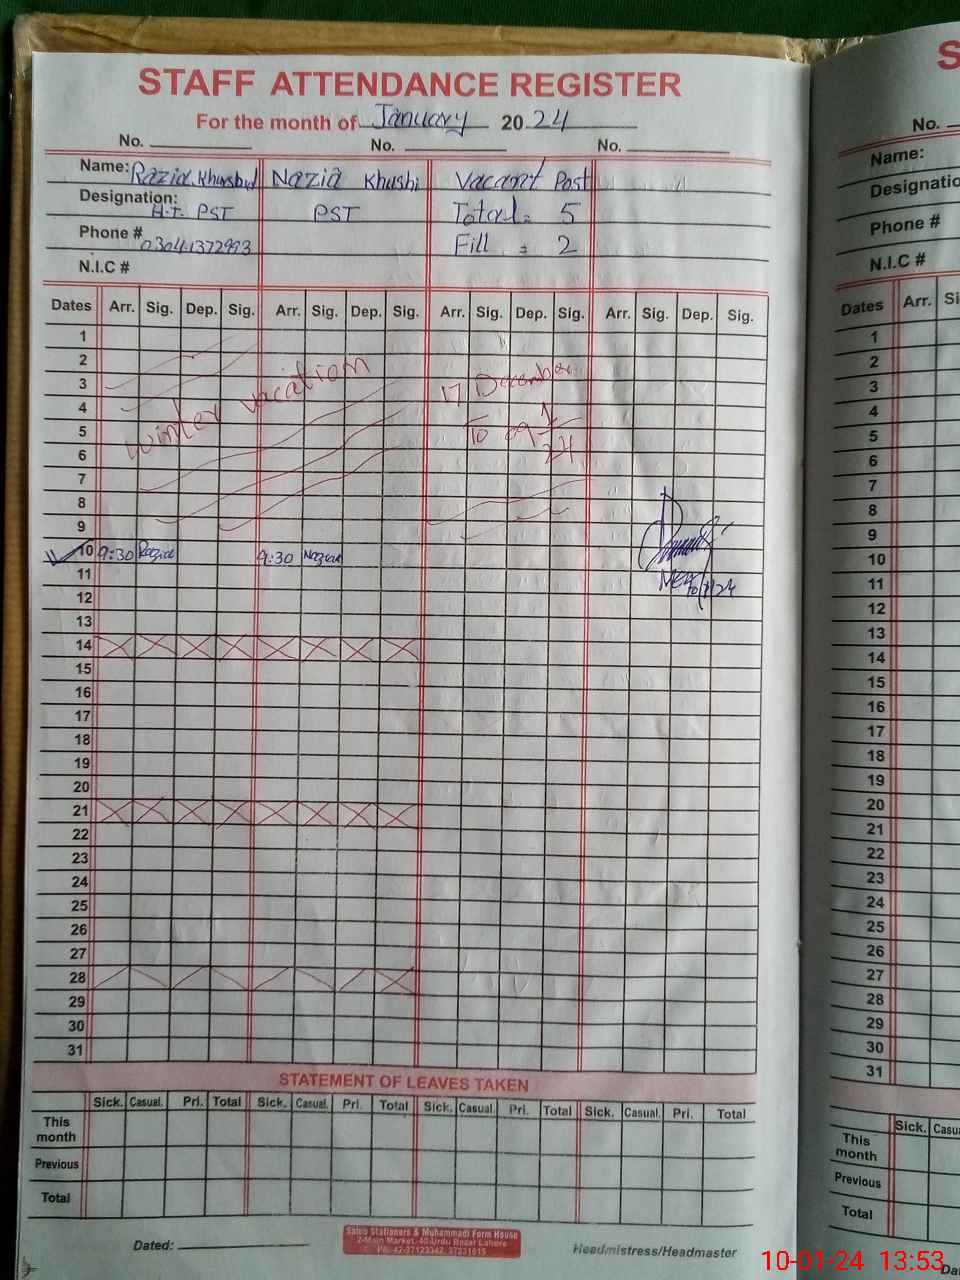 STAFF ATTENDANCE REGISTER
For the month of January 2024
No. No. No.
Name: Razia Khurshid Nazia Khushi Vacant Post
Designation: H.T. PST PST Total = 5
Phone # 03041372993 Fill = 2
N.I.C #
Dates Arr. Sig. Dep. Sig. Arr. Sig. Dep. Sig. Arr. Sig. Dep. Sig. Arr. Sig. Dep. Sig.
1
2
3 17 December
4 winter vacation
5 To 09 1
6 24
7
8
9
10 9:30 Razia 9:30 Nazia
11
12
13
14
15
16
17
18
19
20
21
22
23
24
25
26
27
28
29
30
31
STATEMENT OF LEAVES TAKEN
Sick. Casual. Pri. Total Sick. Casual. Pri. Total Sick. Casual. Pri. Total Sick. Casual. Pri. Total
This month
Previous
Total
Dated:
Sahib Stationers & Muhammadi Form House
2-Main Market, 40-Urdu Bazar Lahore
Headmistress/Headmaster
S
No.
Name:
Designatio
Phone #
N.I.C #
Dates Arr. Si
1
2
3
4
5
6
7
8
9
10
11
12
13
14
15
16
17
18
19
20
21
22
23
24
25
26
27
28
29
30
31
Sick. Casua
This month
Previous
Total
Da
10-01-24 13:53